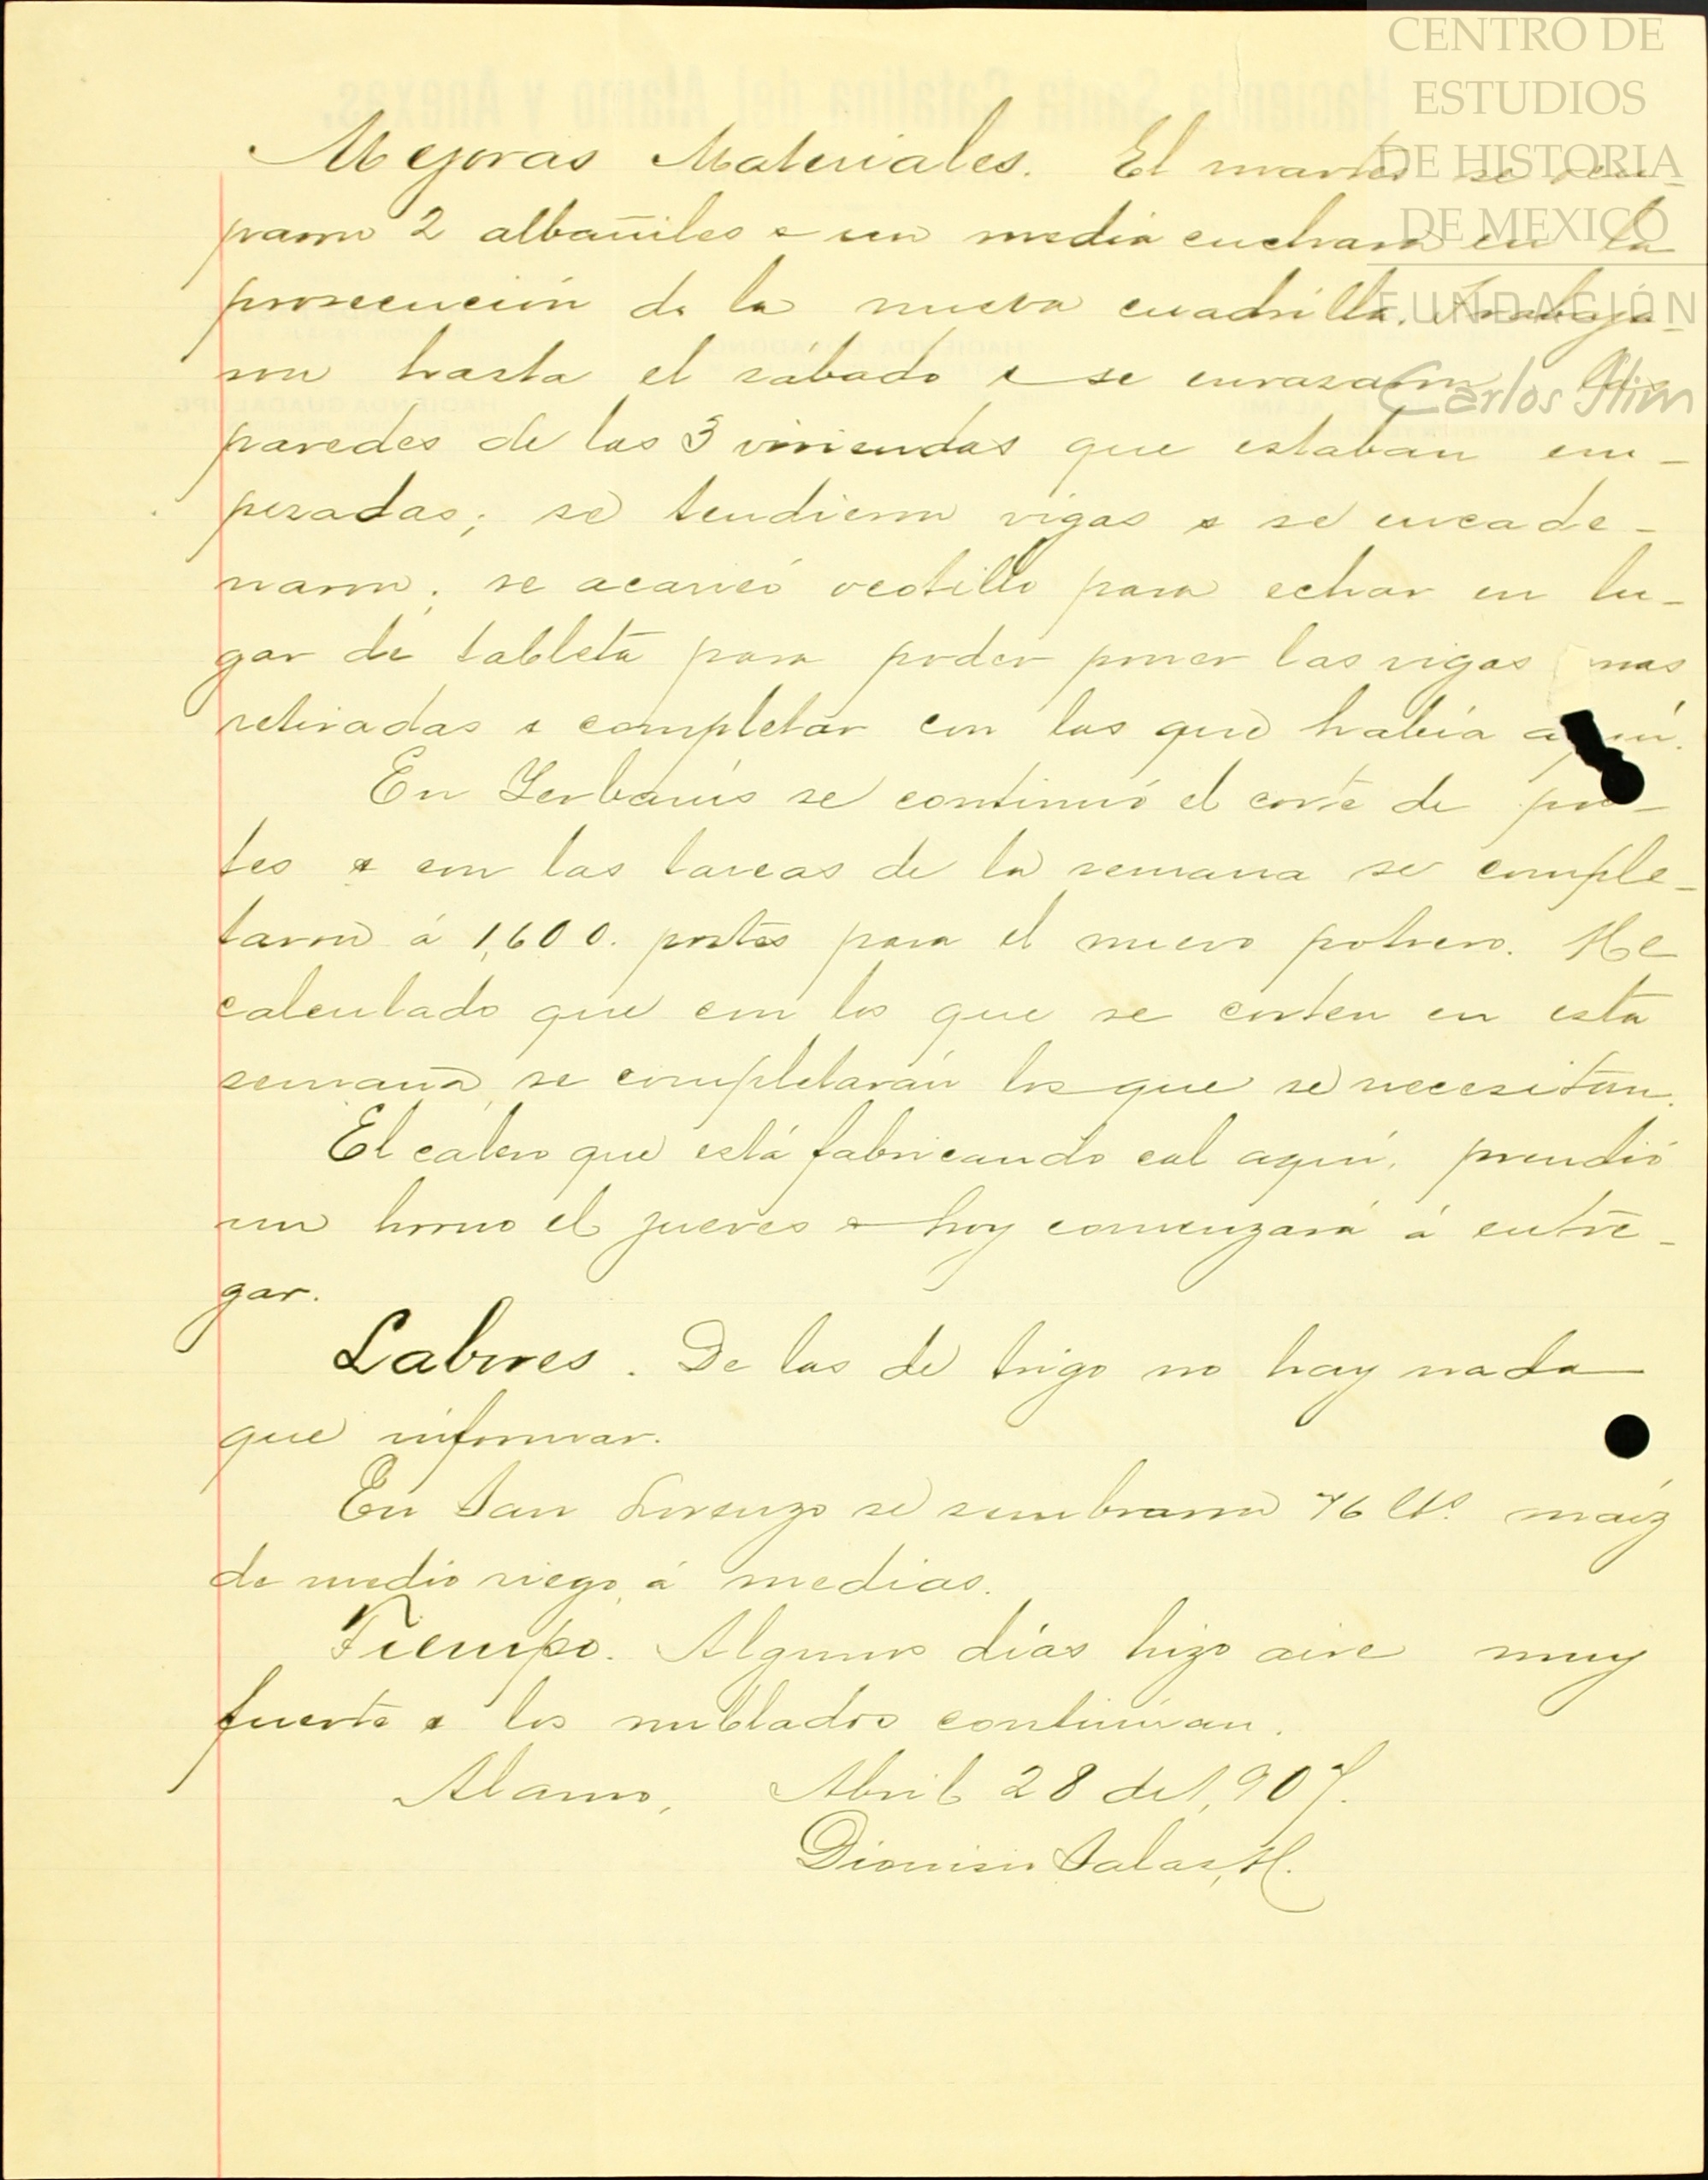 CENTRO DE
ESTUDIOS
DE HISTORIA
DE MEXICO
FUNDACIÓN
Carlos Slim
Hacienda Santa Catalina del Alamo y Anexas.
Mejoras Materiales. El martes se ocu-
paron 2 albañiles e un media cuchara en la
prosecución de la nueva cuadrilla. Trabaja-
ron hasta el sábado e se enrasaron las
paredes de las 3 viviendas que estaban em-
pesadas; se tendieron vigas e se encade-
naron; se acarreó ocotillo para echar en lu-
gar de tableta para poder poner las vigas mas
retiradas e completar con las que había aquí.
En Yerbanís se continuó el corte de pos-
tes e con las tareas de la semana se comple-
taron á 1,600. postes para el nuevo potrero. He
calculado que con los que se corten en esta
semana, se completarán los que se necesitan.
El calero que está fabricando cal aquí, prendió
un horno el jueves e hoy comenzará á entre-
gar.
Labores. De las de trigo no hay nada
que informar.
En San Lorenzo se sembraron 76 lts. maíz
de medio riego, á medias.
Tiempo. Algunos días hizo aire muy
fuerte e los nublados continúan.
Alamo, Abril 28 de 1,907.
Dionisio Salas, H.